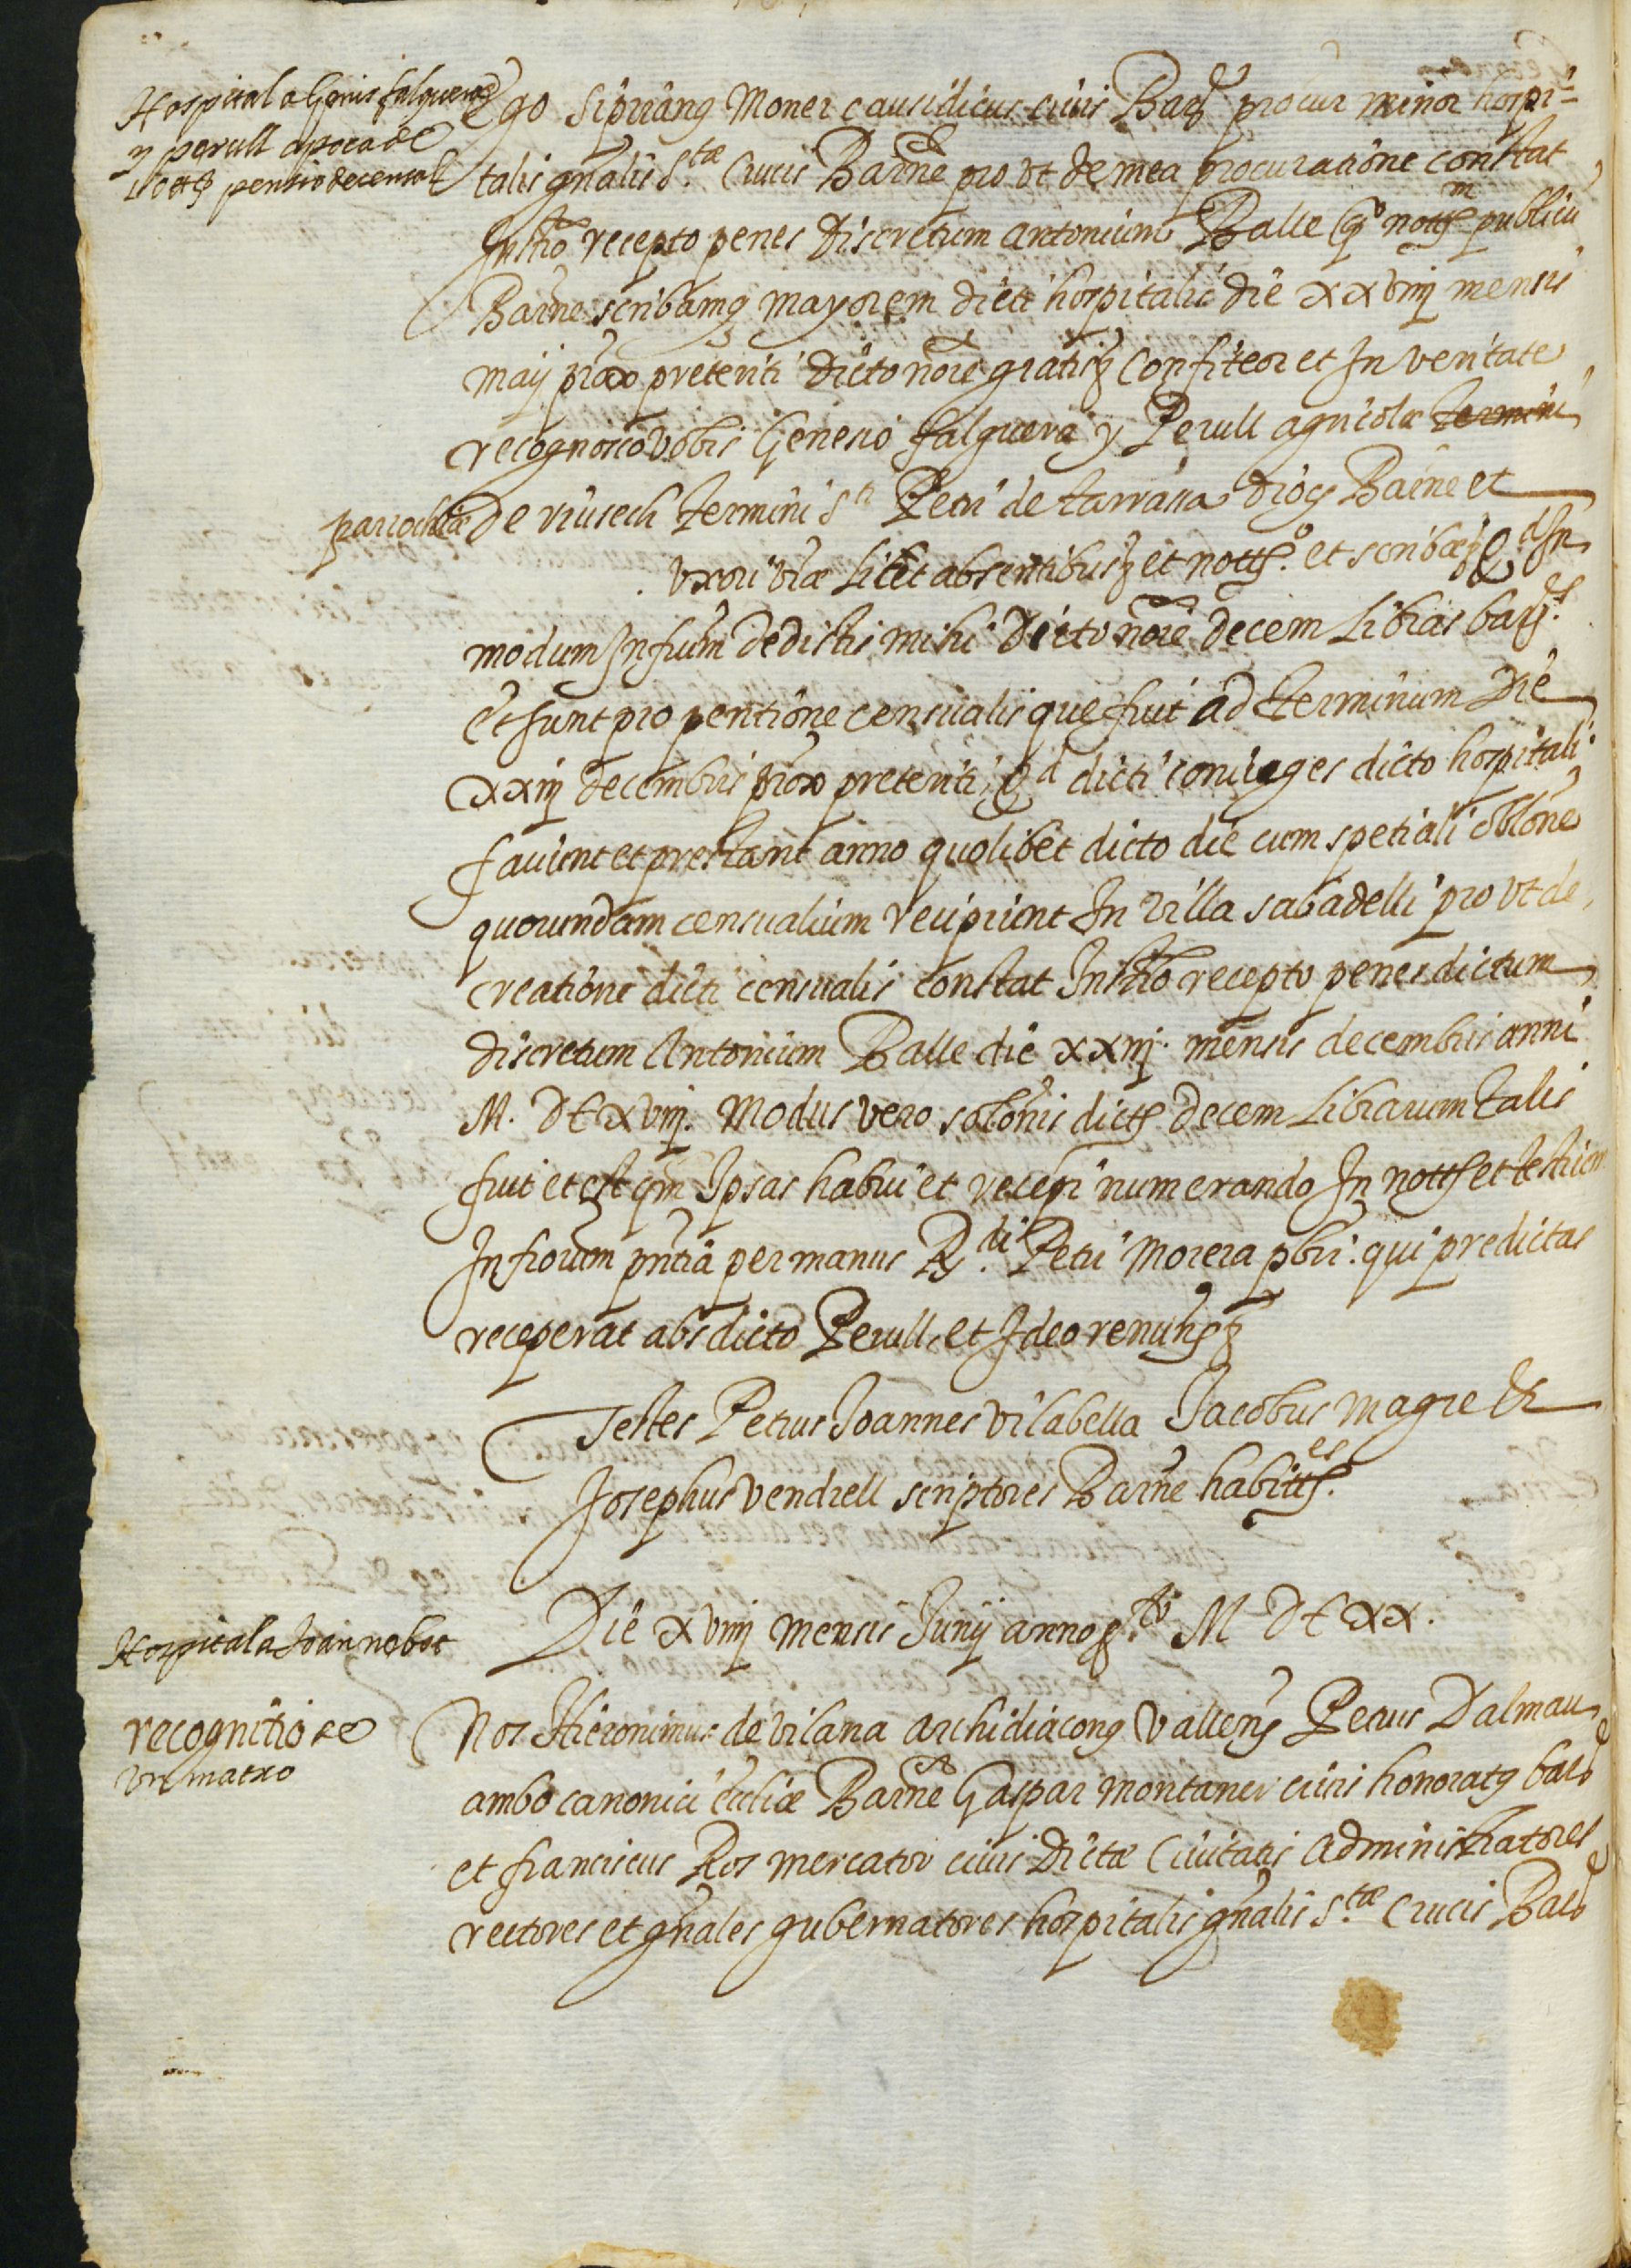 Hospital a Genis falguera
y perull apoca de
10 ₶ pensio de censal
Ego Siprianus Moner causidicus civis Barᵉ procur minor hospi-
talis gñalis S.tæ Crucis Barñe pro ut de mea procuratione constat
Instrõ recepto penes Discretum Antonium Batlle qº notm publicu
Barñe scribamq mayorem dicti hospitalis die xxviiij mensis
maij prox preteriti dicto noīe gratis Confiteor et In veritate
recognosco vobis Genesio falguera y Perull agricolæ termini
parrochiæ de riusech termini Sti Petri de tarrasa diocs Barñe et
uxori vræ Licet absentibus et notto. et scribæ Qd In
modum Infrum dedistis mihi Dicto noīe decem Libras bar.es
et sunt pro pentione censualis que fuit ad terminum Die
xxiij decembris prox preteriti, Qd dicti coniuges dicto hospitali
faciunt et prestant anno quolibet dicto die cum spetiali oblõne
quorundam censualium recipiunt In villa sabadelli pro ut de
creatione dicti censualis constat Instrõ recepto penes dictum
discretum Antonium Batlle die xxiij. mensis decembris anni
M. DCxviij. Modus vero solõnis dict decem Librarum talis
fuit et est qm Ipsas habui et recepi numerando In nott et testium
Infrorum pñtia per manus Rdi. Petri Morera pbri: qui predictas
receperat abs dicto Perull, et Ideo renuns
Testes Petrus Joannes vilabella Jacobus Magre et
Josephus vendrell scriptores Barñe habittes.
Die xviiij mensis Junij anno p.to M DC xx.
Hospital a Joan nobot
recognitio de
un matxo
Nos Hieronimus de vilana archidiaconq Vallens Petrus Dalmau
ambo canonici eccliæ Barñe Gaspar montaner civis honoratq barᵉ
et franciscus Ros mercator civis Dictæ Civitatis administratores
rectores et gñales gubernatores hospitalis gñalis S.tæ Crucis Barᵉ